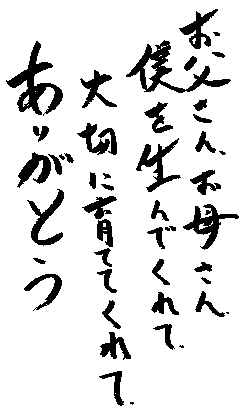 お父さん、お母さん
僕を生んでくれて
大切に育ててくれて
ありがとう